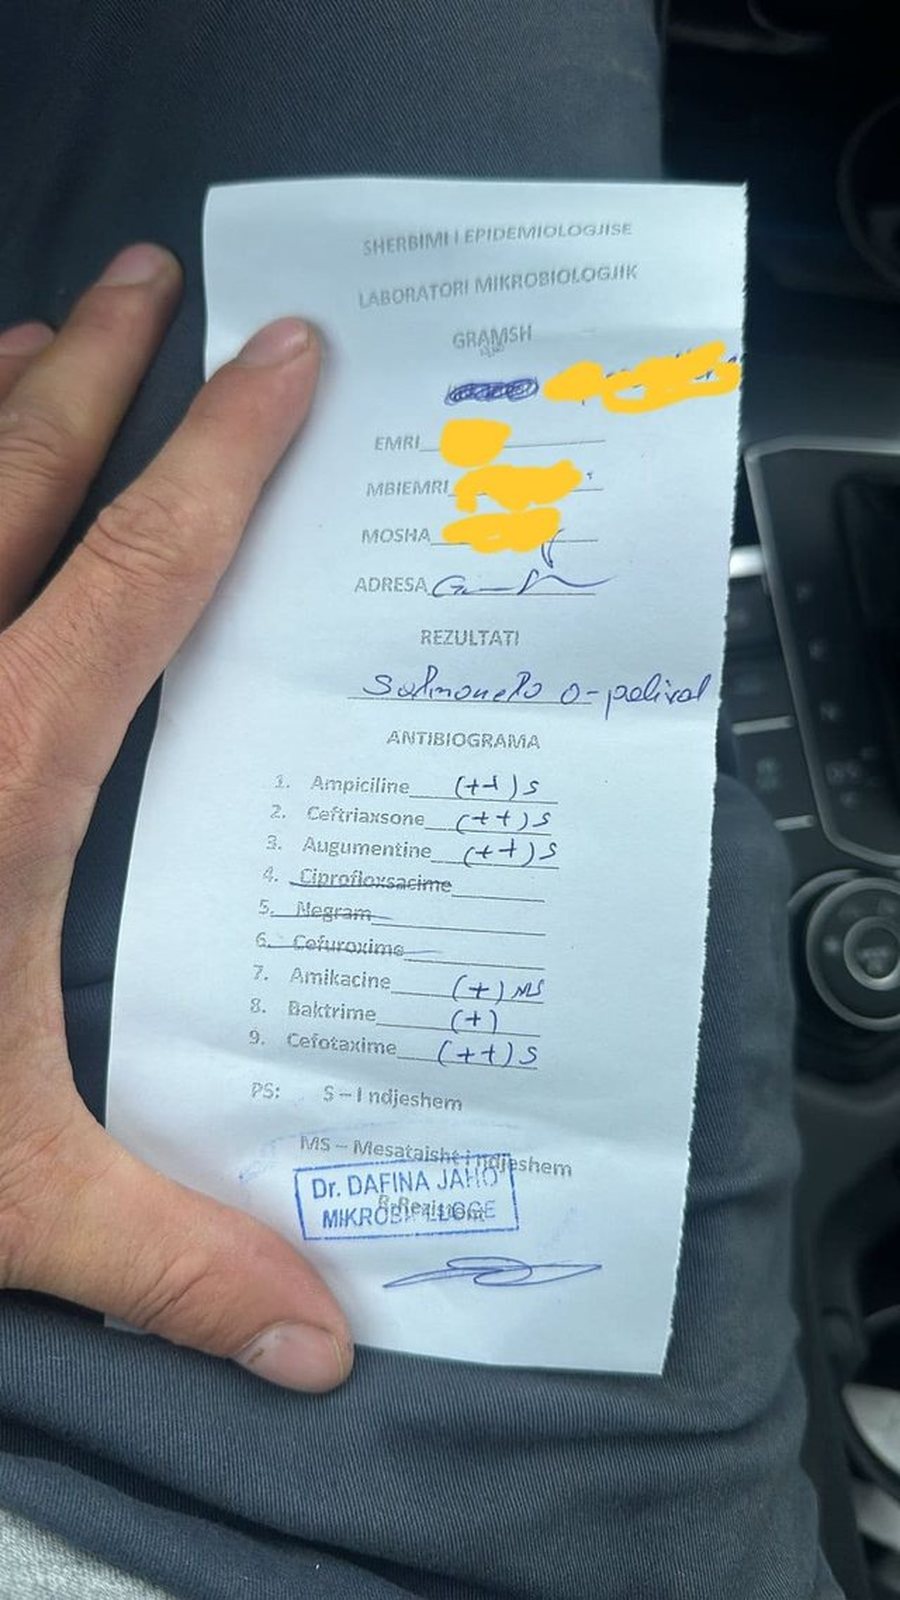 SHERBIMI I EPIDEMIOLOGJISE
LABORATORI MIKROBIOLOGJIK
GRAMSH
EMRI
MBIEMRI
MOSHA
ADRESA
REZULTATI
Salmonelo o-polival
ANTIBIOGRAMA
1. Ampiciline (++) S
2. Ceftriaxsone (++) S
3. Augumentine (++) S
4. Ciprofloxsacime
5. Negram
6. Cefuroxime
7. Amikacine (+) MS
8. Baktrime (+)
9. Cefotaxime (++) S
PS: S – I ndjeshem
MS – Mesataisht i ndjeshem
Dr. DAFINA JAHO